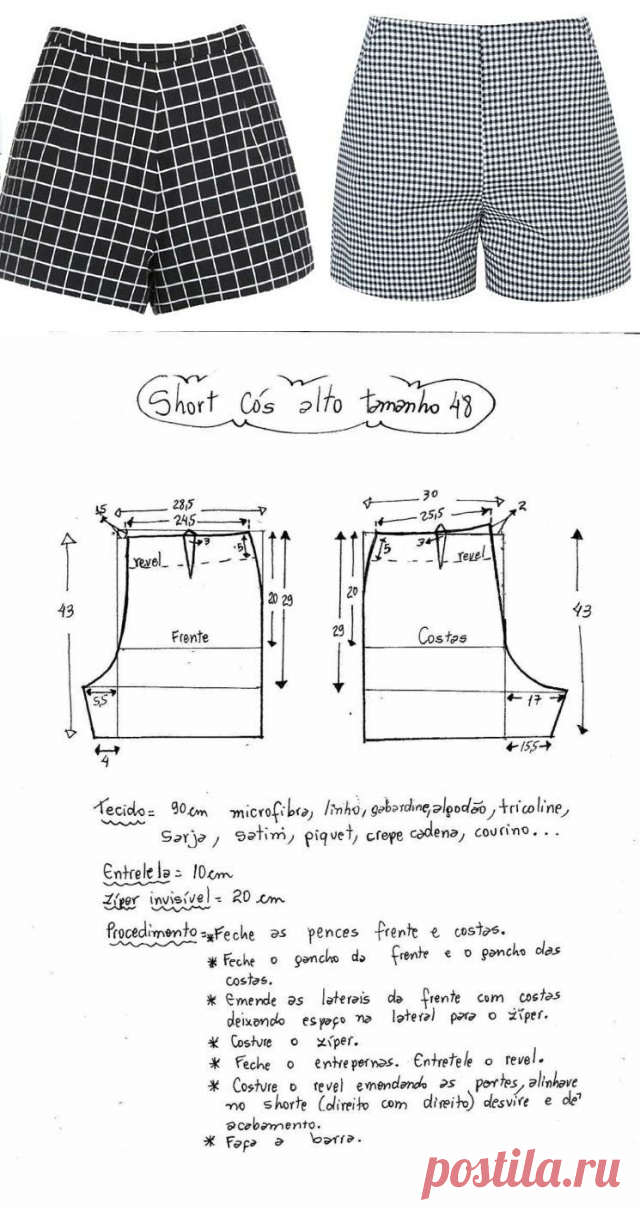 Short Cós alto tamanho 48
28,5
24,5
1,5
3
5
revel
20
29
43
Frente
5,5
4
30
25,5
2
5
3
revel
20
29
43
Costas
17
15,5
Tecido = 90cm microfibra, linho, gabardine, algodão, tricoline,
sarja, setim, piquet, crepe cadena, courino...
Entretela = 10cm
Zíper invisível = 20 cm
Procedimento = * Feche as pences frente e costas.
* Feche o gancho da frente e o gancho das
costas.
* Emende as laterais da frente com costas
deixando espaço na lateral para o zíper.
* Costure o zíper.
* Feche o entrepernas. Entretele o revel.
* Costure o revel emendando as partes, alinhave
no shorte (direito com direito) desvire e dê
acabamento.
* Faça a barra.
postila.ru